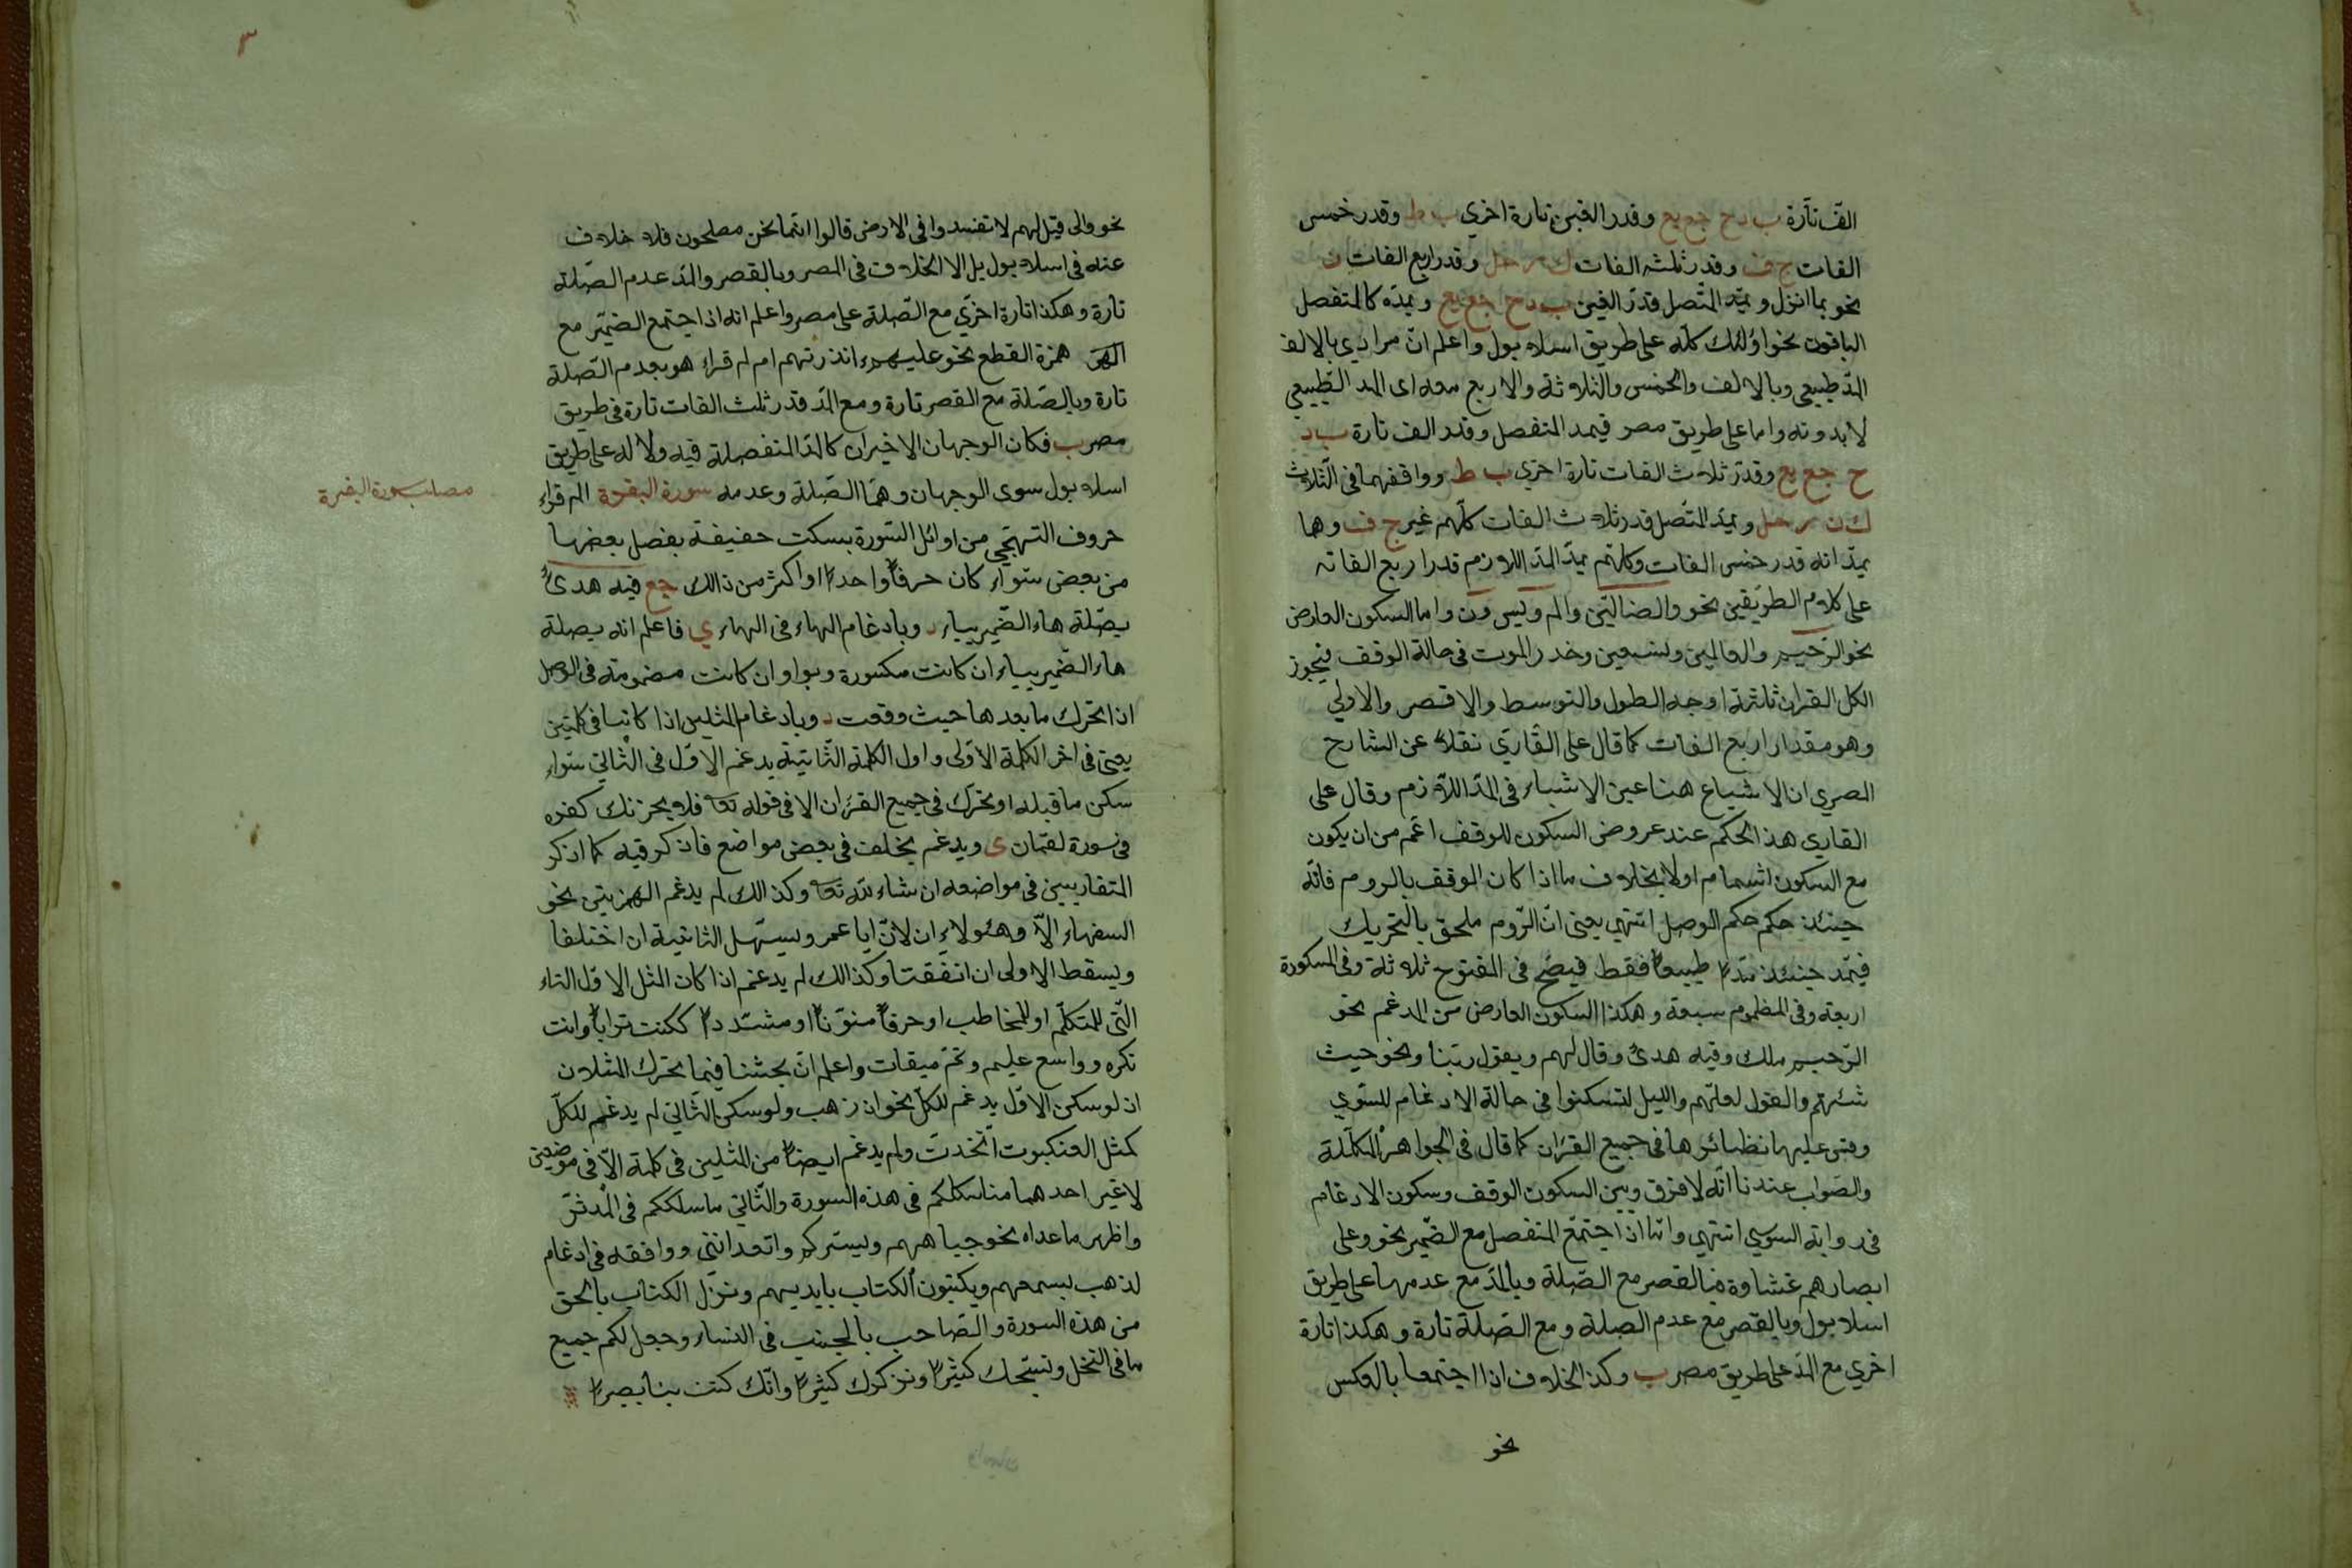 الف تارة ب د ح جع يع وقدر الفين تارة اخري ب ط وقدر خمس
الفات ج ف وقدر ثلثه الفات ك ر حل وقدر اربع الفات ن
نحو بما انزل ويمد المتصل قدر الفين ب د ح جع يع ويمده كالمنفصل
الباقون نحو اولئك كله على طريق اسلامبول واعلم ان مرادي بالالف
المد طبيعي وبالالف والخمس والثلاثة والاربع معه اى المد الطبيعي
لا بدونه واما على طريق مصر فيمد المنفصل وقدر الف تارة ب د
ح جع يع وقدر ثلاث الفات تارة اخري ب ط ووافقهما فى الثلاث
ك ن ر حل ويمد المتصل قدر ثلاث الفات كلهم غير ج ف وهما
يمدانه قدر خمس الفات وكلهم يمد المد اللازم قدر اربع الفات
على كلام الطريقين نحو والضالين والم ويس ون واما السكون العارض
نحو الرحيم والعالمين ونستعين وحذر الموت فى حالة الوقف فيجوز
الكل القران ثلثة اوجه الطول والتوسط والاقصر والاولي
وهو مقدار اربع الفات كما قال على القاري نقلا عن الشارح
المصري ان الاشباع هنا عين الاشباع فى المد اللازم وقال على
القاري هذا الحكم عند عروض السكون للوقف اعم من ان يكون
مع السكون اشمام اولا بخلاف ما اذا كان الوقف بالروم فانه
حينئذ حكم حكم الوصل انتهى يعنى ان الروم ملحق بالتحريك
فيمد حينئذ مدا طبيعا فقط فيصح فى المفتوح ثلاثة وفى المكسورة
اربعة وفى المظموم سبعة وهكذا السكون العارض من المدغم نحو
الرحيم ملك وفيه هدى وقال لهم ويقول ربنا ونحو حيث
شئتم والقول لعلهم والليل لتسكنوا فى حالة الادغام للسوي
وقس عليها نظائرها فى جميع القران كما قال فى الجواهر المكللة
والصواب عندنا انه لا فرق وبين السكون الوقف وسكون الادغام
فى رواية السوسي انتهى واما اذا اجتمع المنفصل مع الضمير نحو وعلى
ابصارهم غشاوة فبالقصر مع الصلة وبالمد مع عدمها على طريق
اسلامبول وبالقصر مع عدم الصلة ومع الصلة تارة وهكذا تارة
اخري مع المد على طريق مصر ب وكذا الخلاف اذا اجتمعا بالعكس
نحو
٣
نحو والى قيل لهم لا تفسدوا فى الارض قالوا انما نحن مصلحون فلا خلاف
عنه فى اسلامبول بل الا الخلاف فى المصر وبالقصر والمد عدم الصلة
تارة وهكذا تارة اخري مع الصلة على مصر واعلم انه اذا اجتمع الضمير مع
همزة القطع نحو عليهم ءانذرتهم ام لم قراء هو بعدم الصلة
تارة وبالصلة مع القصر تارة ومع المد قدر ثلث الفات تارة فى طريق
مصر ب فكان الوجهان الاخيران كالمد المنفصلة فيه ولا له على طريق
اسلامبول سوى الوجهان وهما الصلة وعدمه سورة البقرة الم قراء
مصلب سورة البقرة
حروف التهجي من اوائل السورة بسكت خفيفة بفصل بعضها
من بعض سواء كان حرفا واحدا او اكثر من ذالك جع فيه هدى
بصلة هاء الضمير بياء د وبادغام الهاء فى الهاء ي فاعلم انه بصلة
هاء الضمير بياء ان كانت مكسورة وبواو ان كانت مضمومة فى الوصل
اذا تحرك ما بعدها حيث وقعت د وبادغام المثلين اذا كانا فى كلمتين
يعنى فى اخر الكلمة الاولى واول الكلمة الثانية يدغم الاول فى الثاني سواء
سكن ما قبله او تحرك فى جميع القران الا فى قوله تعا فلا يحزنك كفره
فى سورة لقمان ى ويدغم بخلف فى بعض مواضع فاذكر فيه كما اذكر
المتقاربين فى مواضعه ان شاء لله تعا وكذالك لم يدغم الهمزتين نحو
السفهاء الا وهئولاء ان لان ابا عمر ويسهل الثانية ان اختلفا
ويسقط الاولى ان اتفقتا وكذالك لم يدغم اذا كان المثل الاول التاء
التى للمتكلم او للمخاطب او حرفا منونا او مشددا ككنت ترابا وانت
تكره وواسع عليم وتم ميقات واعلم ان بحثنا فيما تحرك المثلان
اذ لو سكن الاول يدغم للكل نحو اذ ذهب ولو سكن الثاني لم يدغم للكل
كمثل العنكبوت اتخدت ولم يدغم ايضا من المثلين فى كلمة الا فى موضعين
لا غير احدهما مناسككم فى هذه السورة والثاني ما سلككم فى المدثر
واظهر ما عداه نحو جباههم وبشرككم واتعدانني ووافقه فى ادغام
لذهب بسمعهم ويكتبون الكتاب بايديهم ونزل الكتاب بالحق
من هذه السورة والصاحب بالجنب فى النساء وجعل لكم جميع
ما فى النحل ونسبحك كثيرا ونذكرك كثيرا وانك كنت بنا بصيرا